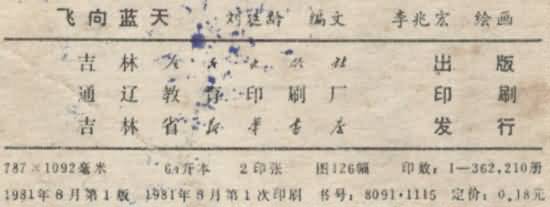 飞向蓝天 刘廷龄 编文 李兆宏 绘画
吉林人民出版社 出版
通辽教育印刷厂 印刷
吉林省新华书店 发行
787×1092毫米 64开本 2印张 图126幅 印数：1—362,210册
1981年8月第1版 1981年8月第1次印刷 书号：8091·1115 定价：0.18元